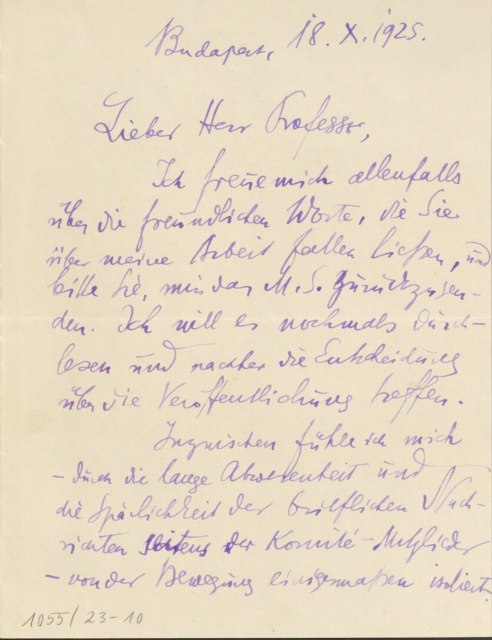 Budapest, 18. X. 1925.
Lieber Herr Professor,
Ich freue mich allenfalls
über die freundlichen Worte, die Sie
über meine Arbeit fallen ließen, und
bitte Sie, mir das M. S. zurückzusen-
den. Ich will es nochmals durch-
lesen und nachher die Entscheidung
über die Veröffentlichung treffen.
Inzwischen fühle ich mich
– durch die lange Abwesenheit und
die Spärlichkeit der brieflichen Nach-
richten seitens der Komité-Mitglieder
– von der Bewegung einigermaßen isoliert.
1055/23-10